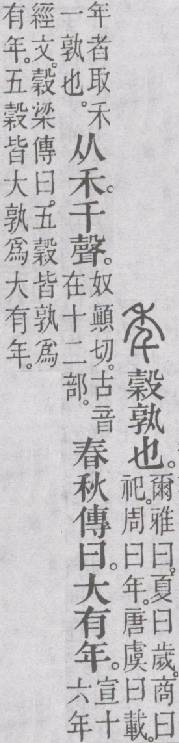 秊穀孰也。
爾雅曰。夏曰歲。商曰
祀。周曰年。唐虞曰載。
年者取禾
一孰也。
从禾。千聲。
奴顚切。古音
在十二部。
春秋傳曰。大有年。
宣十
六年
經文。穀梁傳曰。五穀皆孰爲
有年。五穀皆大孰爲大有年。